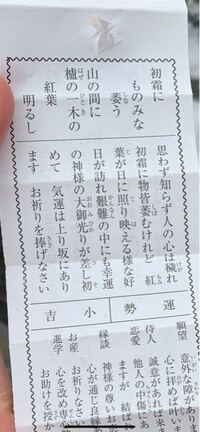 初霜に
ものみな
萎う
山の間に
櫨の一木の
紅葉
明るし
思わず知らず人の心は穢れ
初霜に物皆萎むけれど 紅
葉が日に照り映える様な好
日が訪れ艱難の中にも幸運
の神様の大御光りが差し初
めて 気運は上り坂にあり
ます お祈りを捧げなさい
運勢
小吉
願望 意外な障があり
心に拝めば叶い
待人 誠意があれば来
恋愛 他人の中傷あ
ますが 結ば
縁談 神様の尊いお
心が通じ良縁
お産 お祈りなさい
進学 心を改め専心
お助けを授か